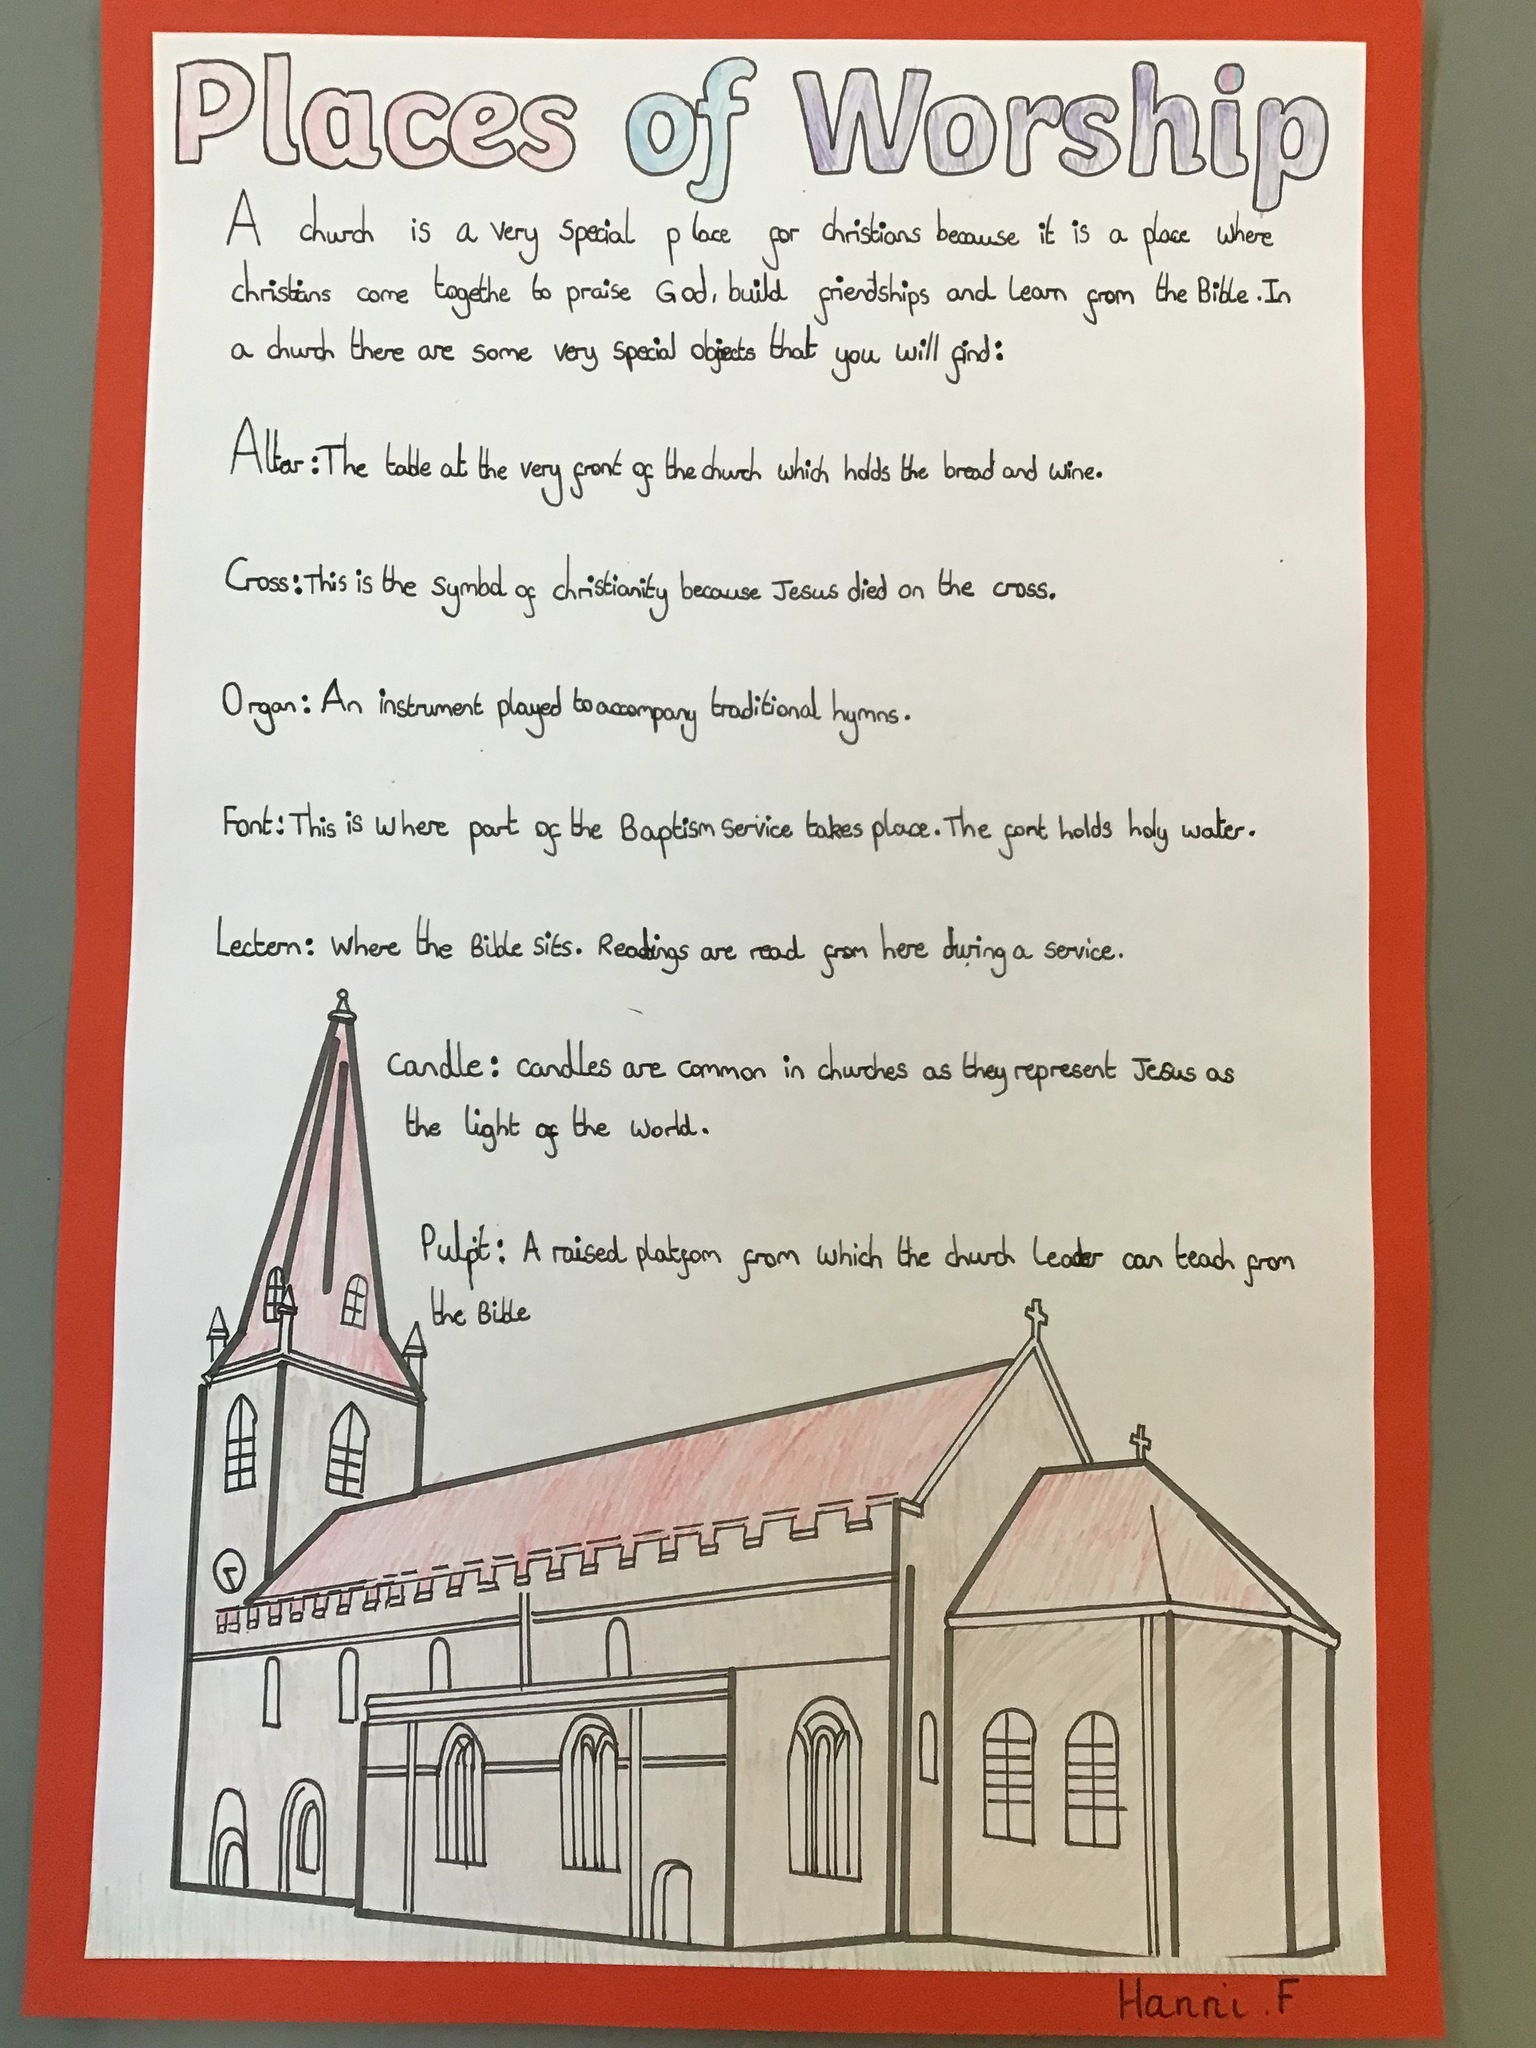 Places of Worship
A church is a very special place for christians because it is a place where
christians come togethe to praise God, build friendships and learn from the Bible. In
a church there are some very special objects that you will find:
Altar: The table at the very front of the church which holds the bread and wine.
Cross: This is the symbol of christianity because Jesus died on the cross.
Organ: An instrument played to accompany traditional hymns.
Font: This is where part of the Baptism service takes place. The font holds holy water.
Lectern: Where the Bible sits. Readings are read from here during a service.
Candle: candles are common in churches as they represent Jesus as
the light of the world.
Pulpit: A raised platfom from which the church leader can teach from
the Bible
Hanni . F